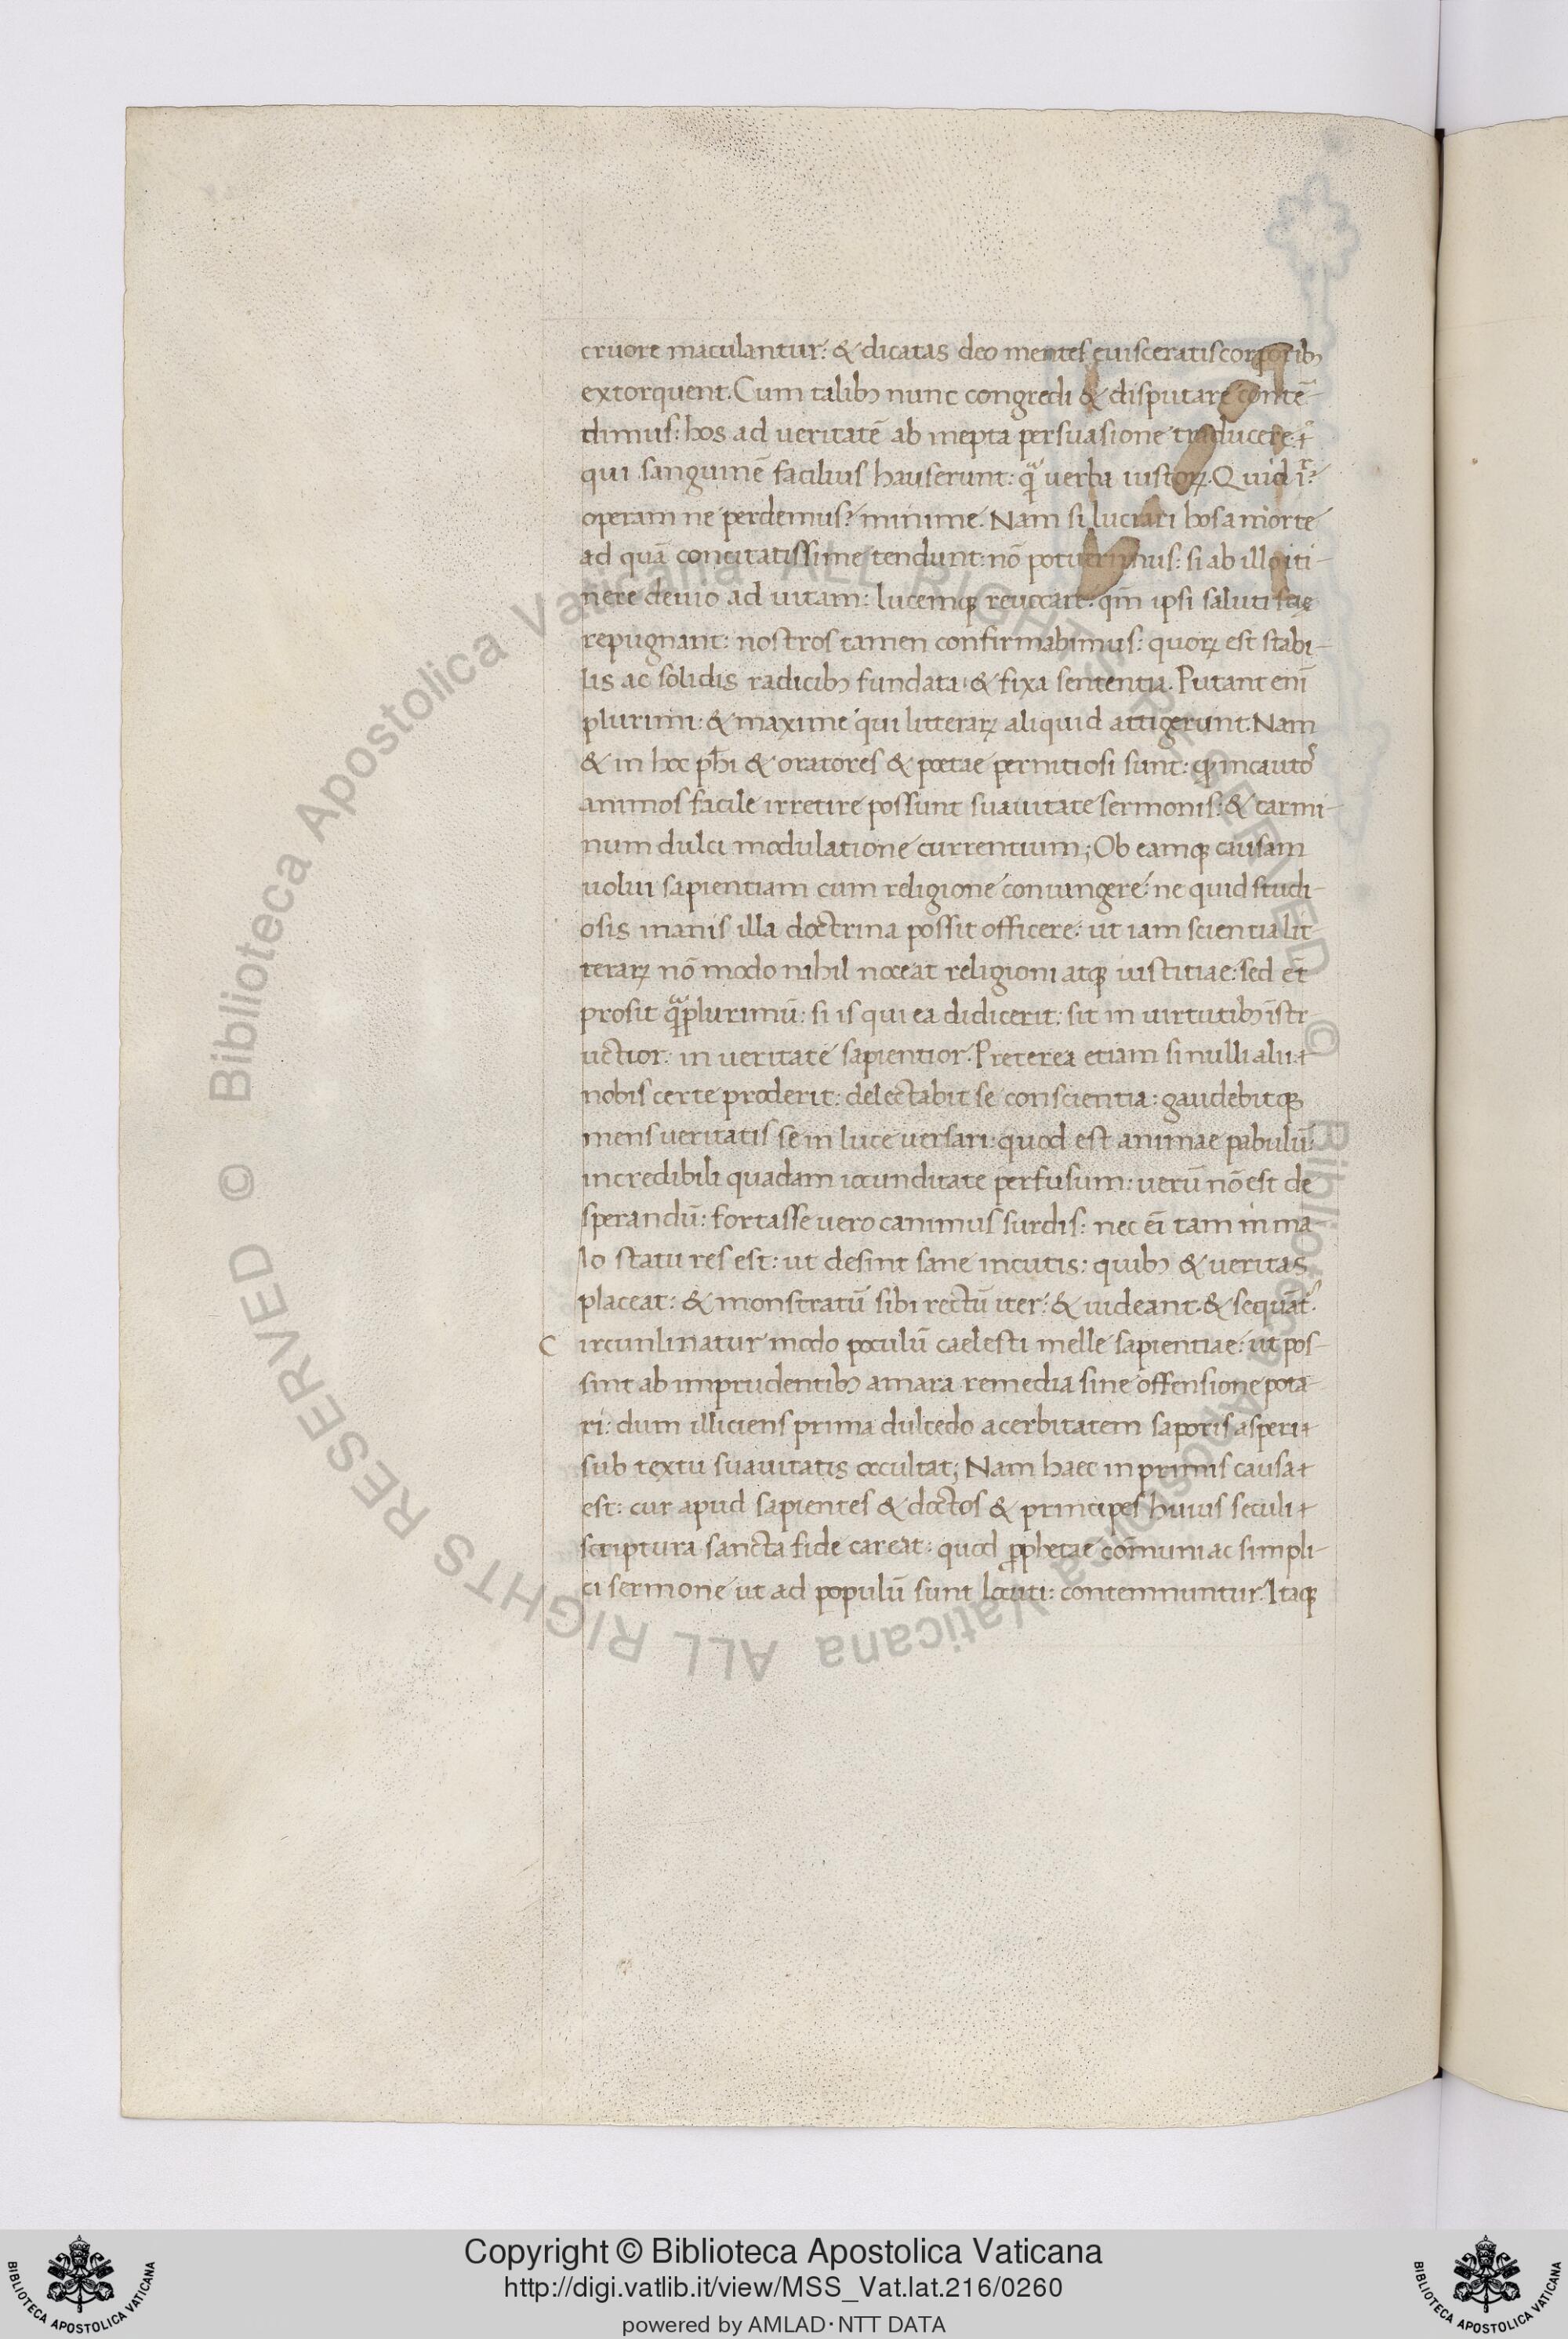 cruore maculantur: & dicatas deo mentes euisceratis corporibꝫ
extorquent. Cum talibꝫ nunc congredi & disputare contē-
dimus: hos ad ueritatē ab inepta persuasione traducere:
qui sanguinē facilius hauserunt: qͣ̃ uerba iustoꝝ. Quid iͬ?
operam ne perdemus? minime. Nam si lucrari hos a morte
ad quā concitatissime tendunt: nō potuerimus: si ab illo iti-
nere deuio ad uitam: lucemqꝫ reuocare: qm̄ ipsi saluti suę
repugnant: nostros tamen confirmabimus: quoꝝ est stabi-
lis ac solidis radicibꝫ fundata: & fixa sententia. Putant eni̅
plurimi: & maxime qui litteraꝝ aliquid attigerunt. Nam
& in hoc phi̅ & oratores & poetae pernitiosi sunt: ꝙ incautoꝝ
animos facile irretire possunt suauitate sermonis: & carmi-
num dulci modulatione currentium; Ob eamqꝫ causam
uolui sapientiam cum religione coniungere: ne quid studi-
osis inanis illa doctrina possit officere: ut iam scientia lit-
teraꝝ nō modo nihil noceat religioni atqꝫ iustitiae: sed et̄
prosit qͣ̃plurimū: si is qui ea didicerit: sit in uirtutibꝫ īstr
uctior: in ueritate sapientior. Preterea etiam si nulli alii:
nobis certe proderit: delectabit se conscientia: gaudebitqꝫ
mens ueritatis se in luce uersari: quod est animae pabulū:
incredibili quadam iocunditate perfusum: uerū nō est de
sperandū: fortasse uero canimus surdis: nec ei̅ tam in ma
lo statu res est: ut desint sane incutis: quibꝫ & ueritas
placeat: & monstratū sibi rectū iter: & uideant & sequāt᷑.
C ircunlinatur modo poculū caelesti melle sapientiae: ut pos-
sint ab imprudentibꝫ amara remedia sine offensione pota-
ri: dum illiciens prima dulcedo acerbitatem saporis asperi
sub textu suauitatis occultat; Nam haec in primis causa
est: cur apud sapientes & doctos & principes huius seculi
scriptura sancta fide careat: quod ꝓphetae cōmuni ac simpli-
ci sermone ut ad populū sunt locuti: contemnuntur. Itaqꝫ
© Biblioteca Apostolica Vaticana ALL RIGHTS RESERVED © Biblioteca Apostolica Vaticana ALL RIGHTS RESERVED
Copyright © Biblioteca Apostolica Vaticana
http://digi.vatlib.it/view/MSS_Vat.lat.216/0260
powered by AMLAD·NTT DATA
BIBLIOTECA APOSTOLICA VATICANA
BIBLIOTECA APOSTOLICA VATICANA